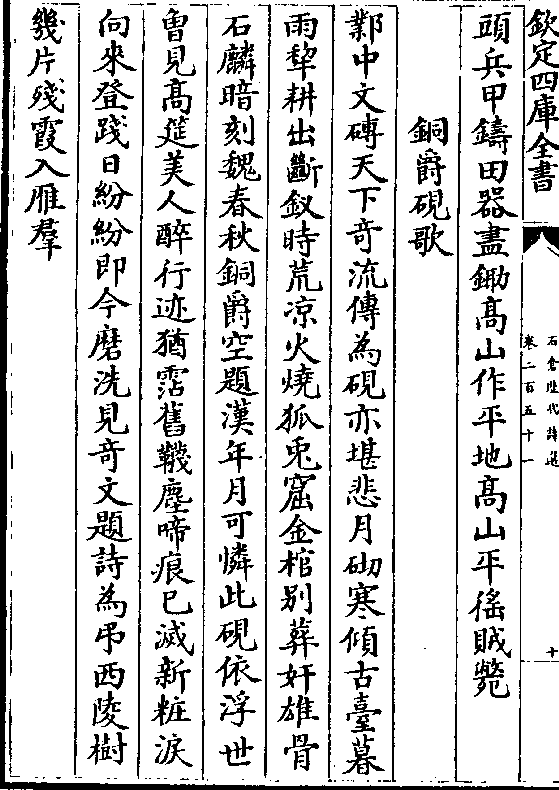 欽定四庫全書
石倉歷代詩選
卷二百五十一
十
頭兵甲鑄田器盡鋤髙山作平地髙山平徭賊斃
銅爵硯歌
鄴中文磚天下奇流傳為硯亦堪悲月砌寒傾古臺暮
雨犂耕出斷釵時荒凉火燒狐兎窟金棺別葬奸雄骨
石麟暗刻魏春秋銅爵空題漢年月可憐此硯依浮世
曾見髙筵美人醉行迹猶霑舊韈塵啼痕已滅新粧淚
向來登踐日紛紛即今磨洗見奇文題詩為弔西陵樹
幾片殘霞入雁羣